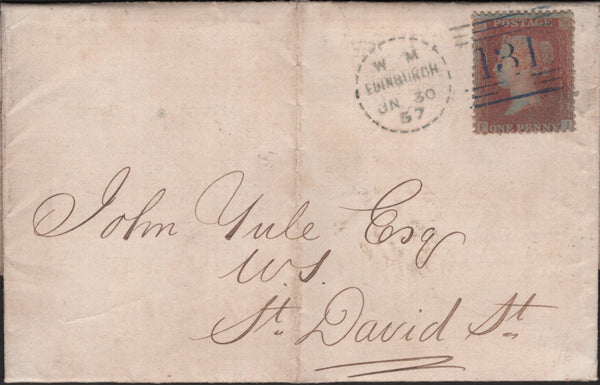 W M
EDINBURGH
JN 30
57
POSTAGE
131
ONE PENNY
John Yule Esq
W.S.
St. David St